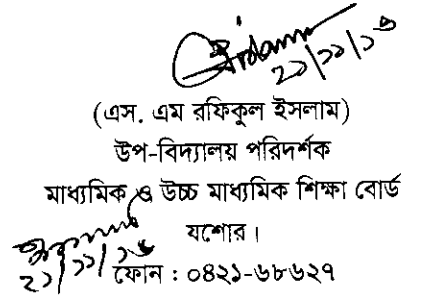 ২১/১১/১৬
(এস. এম রফিকুল ইসলাম)
উপ-বিদ্যালয় পরিদর্শক
মাধ্যমিক ও উচ্চ মাধ্যমিক শিক্ষা বোর্ড
যশোর।
২১/১১/১৬
ফোন : ০৪২১-৬৮৬২৭